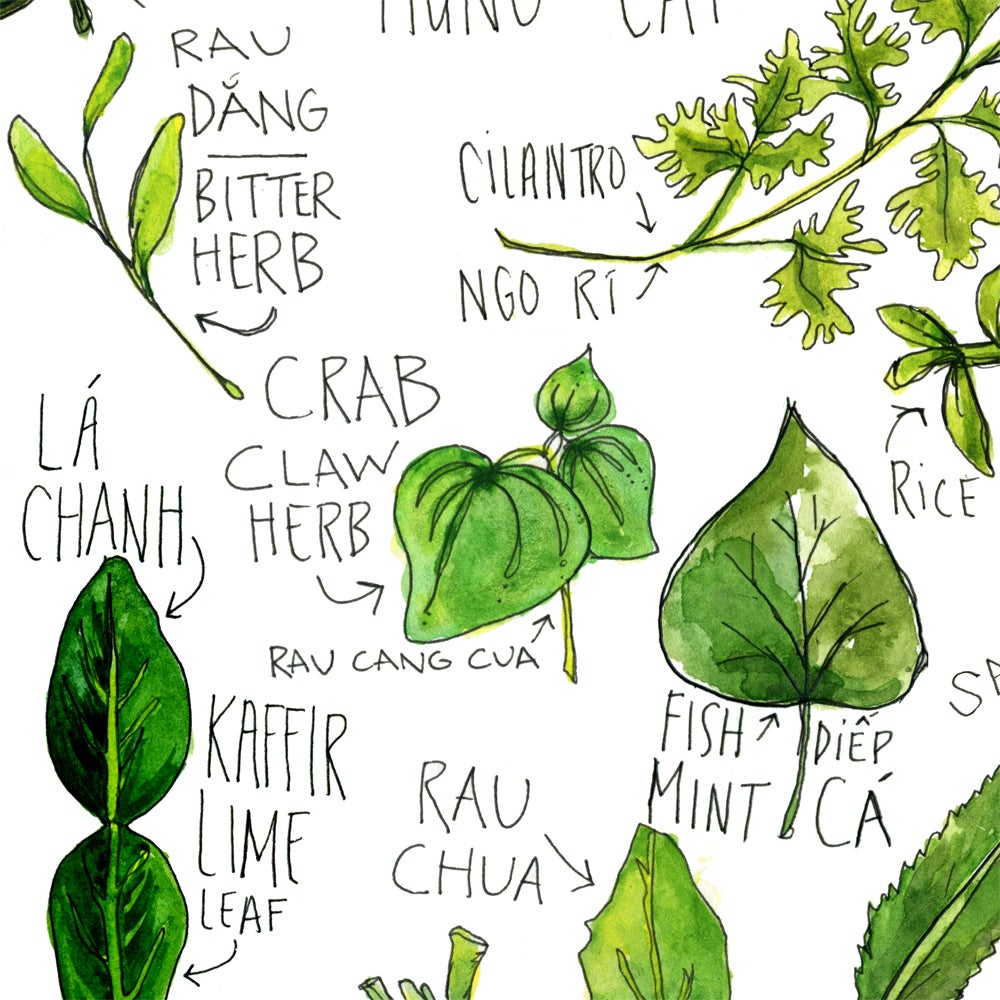 HÚNG CÂY
RAU
DẮNG
BITTER
HERB
CILANTRO
NGO RÍ
CRAB
CLAW
HERB
RAU CANG CUA
LÁ
CHANH
KAFFIR
LIME
LEAF
RICE
FISH
MINT
DIẾP
CÁ
RAU
CHUA